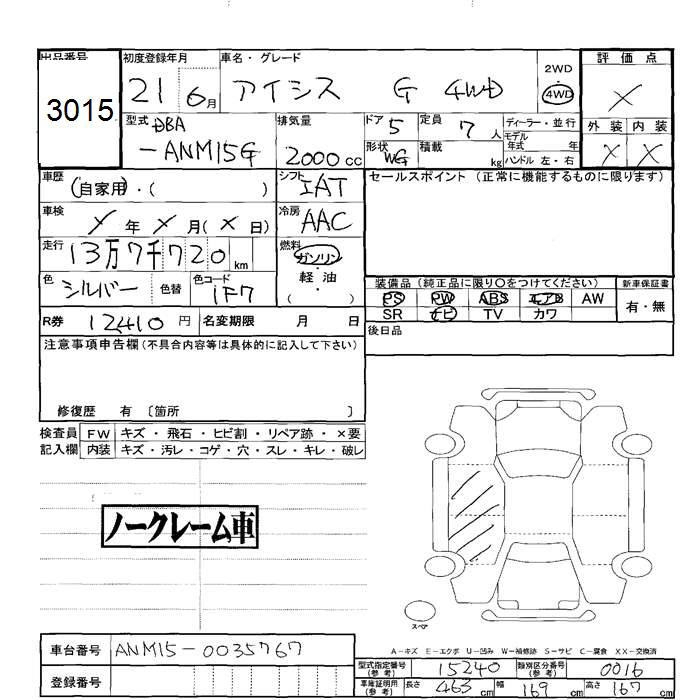 出品番号 初度登録年月 車名・グレード 2WD 評価点
3015 21 6月 アイシス G 4WD 4WD X
型式 DBA 排気量 ドア 5 定員 7人 ディーラー・並行 外装 内装
-ANM15G 2000cc 形状 WG 積載 kg モデル年式 年 X X
ハンドル 左・右
車歴 (自家用)・( ) シフト IAT セールスポイント (正常に機能するものに限ります)
車検 X年 X月(X日) 冷房 AAC
走行 13万7千720km 燃料 ガソリン
色 シルバー 色替 色コード 1F7 軽・油 ( )
装備品 (純正品に限り〇をつけてください) 新車保証書
PS PW ABS エアB AW 有・無
SR ナビ TV カワ
R券 12410円 名変期限 月 日 後日品
注意事項申告欄(不具合内容等は具体的に記入して下さい)
修復歴 有 〔箇所 〕
検査員 FW キズ・飛石・ヒビ割・リペア跡・×要
記入欄 内装 キズ・汚レ・コゲ・穴・スレ・キレ・破レ
ノークレーム車
スペア
A-キズ E-エクボ U-凹み W-補修跡 S-サビ C-腐食 XX-交換済
車台番号 ANM15-0035767
型式指定番号(参考) 15240 類別区分番号(参考) 0016
登録番号 車庫証明用(参考) 長さ 463cm 幅 169cm 高さ 167cm